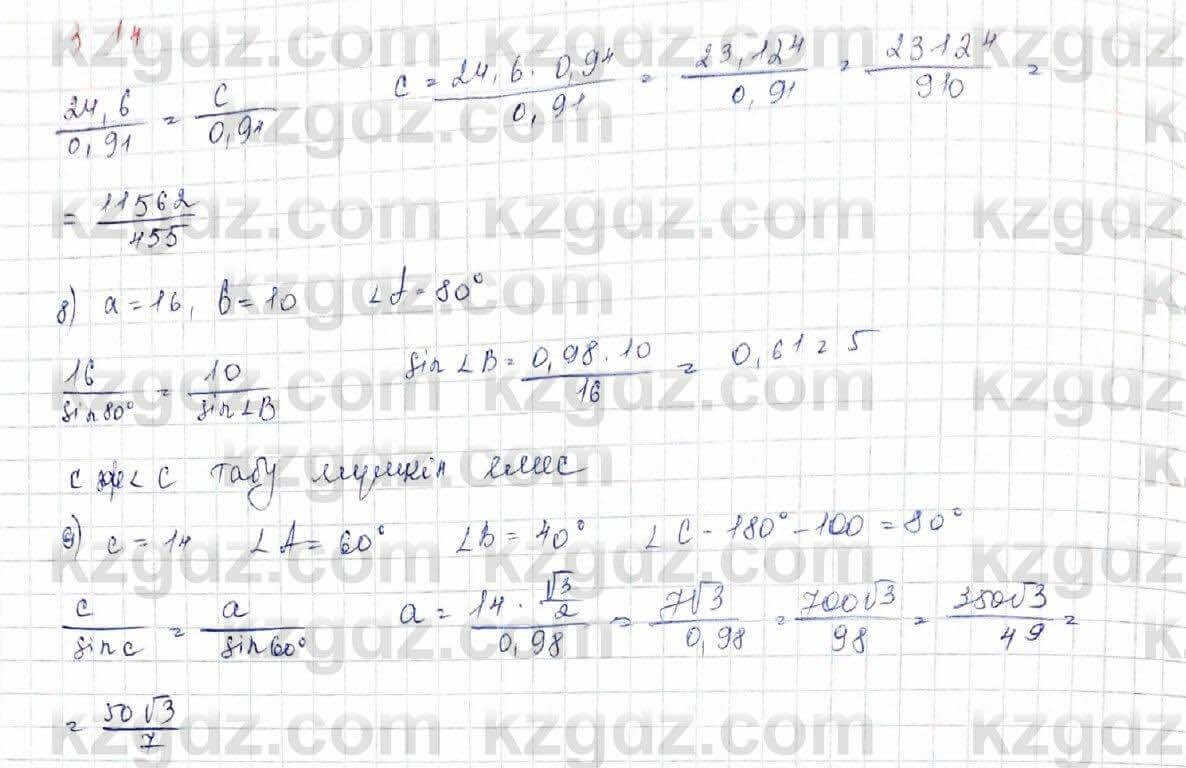 3.14
24,6/0,91 = c/0,94   c = 24,6 · 0,94/0,91 = 23,124/0,91 = 23124/910 =
= 11562/455
8) a = 16, b = 10   ∠A = 80°
16/sin 80° = 10/sin∠B   sin∠B = 0,98 · 10/16 = 0,6125
c ж/е ∠C табу мүмкін емес
9) c = 14   ∠A = 60°   ∠B = 40°   ∠C - 180° - 100 = 80°
c/sin c = a/sin 60°   a = 14 · √3/2/0,98 = 7√3/0,98 = 700√3/98 = 350√3/49 =
= 50√3/7
kzgdz.com